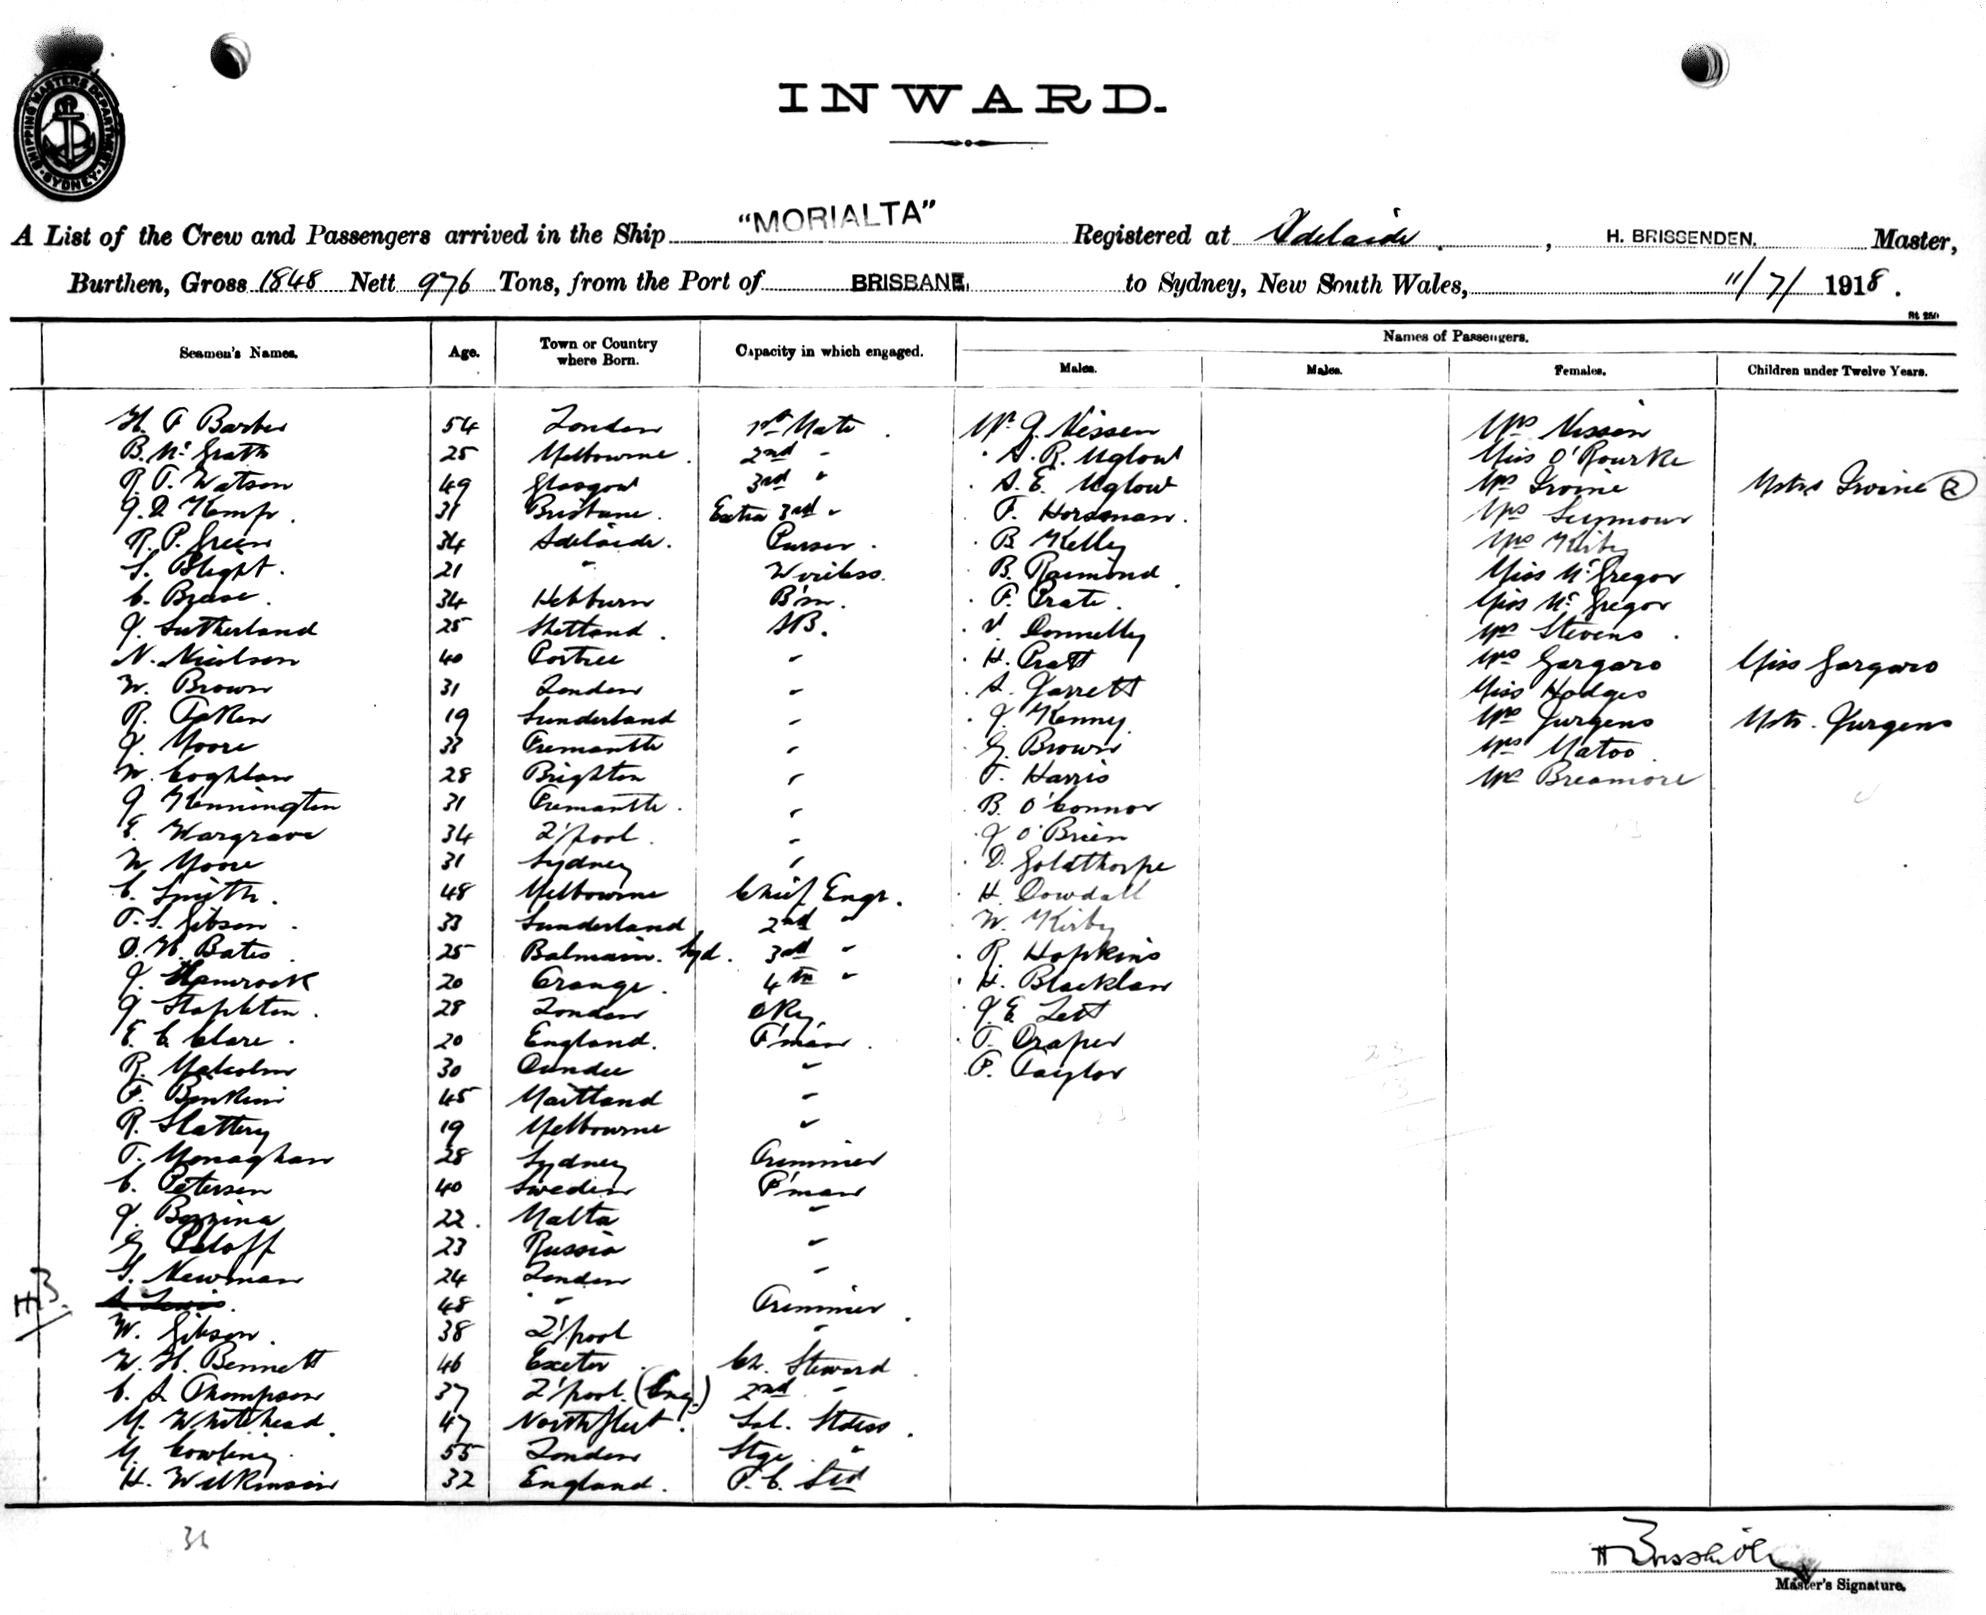 SHIPPING MASTERS DEPARTMENT SYDNEY
INWARD.
A List of the Crew and Passengers arrived in the Ship "MORIALTA" Registered at Adelaide, H. BRISSENDEN. Master,
Burthen, Gross 1848 Nett 976 Tons, from the Port of BRISBANE, to Sydney, New South Wales, 11/7/1918.
Seamen's Names. Age. Town or Country where Born. Capacity in which engaged. Names of Passengers.
Males. Males. Females. Children under Twelve Years.
H. F Barber 54 London 1st Mate Mr. J. Nissen Mrs Nissen
B. McGrath 25 Melbourne 2nd " A. R. Uglow Miss O'Rourke
R. T. Watson 49 Glasgow 3rd " A. E. Uglow Mrs Irvine Mstrs Irvine (2)
J. D. Kemp. 31 Brisbane. Extra 3rd " F. Horsman. Mrs Seymour
R. P. Green 34 Adelaide. Purser. B Kelly Mrs Kirby
S. Blight. 21 " Wireless. B. Raymond Miss McGregor
C. Bease. 34 Hebburn B'm. F. Prate. Miss McGregor
J. Sutherland 25 Shetland. AB. V. Donnelly Mrs Stevens.
N. Nicolson 40 Portree " H. Pratt Mrs Gargaro Miss Gargaro
W. Brown 31 London " A. Garrett Miss Hodges
R. 19 Sunderland " J. Kenny Mrs Jurgens Mstr. Jurgens
J. Moore 33 Fremantle " G. Brown Mrs Matoo
W. Coghlan 28 Brighton " T. Harris Mrs Breamore
J Kennington 31 Fremantle. " B. O'Connor
E. Wargrave 34 L'pool. " J O'Brien
W Moore 31 Sydney " D. Goldthorpe
C. Smith. 48 Melbourne Chief Engr. H. Dowdall
T. S. Gibson. 33 Sunderland 2nd " W. Kirby
O. H. Bates. 25 Balmain. Syd. 3rd " R. Hopkins
J. Shamrock 20 Orange. 4th " H. Blacklaw
J Stapleton. 28 London DKy. J. E. Lett
E. C Clare. 20 England. F'man. T. Draper
R. Malcolm 30 Dundee " P. Taylor
F. Bonkin 45 Maitland "
R. Slattery 19 Melbourne "
T. Monaghan 28 Sydney Trimmer
C. Petersen 40 Sweden F'man
J. Bezzina 22. Malta "
G Peloff 23 Russia "
S. Newman 24 London "
HB. A Lewis. 48 " Trimmer.
W. Gibson. 38 L'pool "
W. H. Bennett 46 Exeter. Ch. Steward.
C. A Thompson 37 L'pool. (Eng.) 2nd "
M. Whitehead. 47 Northfleet. Sal. Stdess.
M. Cowling. 55 London Stge "
H. Wilkinson 32 England. P. C. Std
36
H Brissenden
Master's Signature.